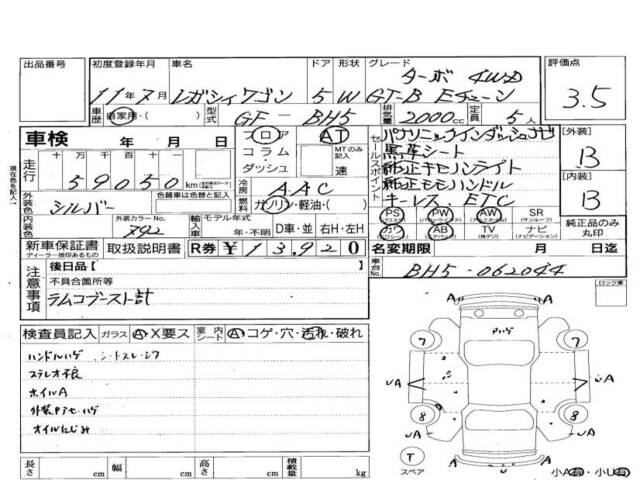 出品番号
初度登録年月 車名 ドア 形状 グレード
評価点
ターボ 4WD
11年7月 レガシィワゴン 5 W GT-B Eチューン
3.5
車歴 自家用・( ) 型式 GF-BH5 排気量 2000cc 定員 5人
車検 年 月 日
フロア コラム・ ダッシュ
AT
MTのみ記入
速
セールスポイント
パナソニックインダッシュナビ
黒革シート
純正キセノンライト
純正モモハンドル
キーレス. ETC
[外装]
B
[内装]
B
純正品のみ丸印
走行 十 万 千 百 十 一
59050km
外装色 シルバー
色替車は色替と記入
内装色
外装カラーNo. 792
冷房 AAC
燃料 ガソリン・軽油・( )
輸入車 モデル年式 年・不明 D車・並 右H・左H
PS PW AW SR
カワ AB TV ナビ
新車保証書
ディーラー捺印あるもの
取扱説明書
R券 ¥13,920
名変期限 月 日迄
車台No. BH5-062044
注意事項
後日品【
不具合箇所等
ラムコブースト計
ロック車
検査員記入 ガラス A・X要ス 室内シート A・コゲ・穴・汚れ・破れ
ハンドルハゲ
ステレオ不良
ホイルA
オイルにじみ
7 7
8 8
A
UA
UA
T
スペア
小A有・小U有
長さ cm 幅 cm 高さ cm 積載量 kg